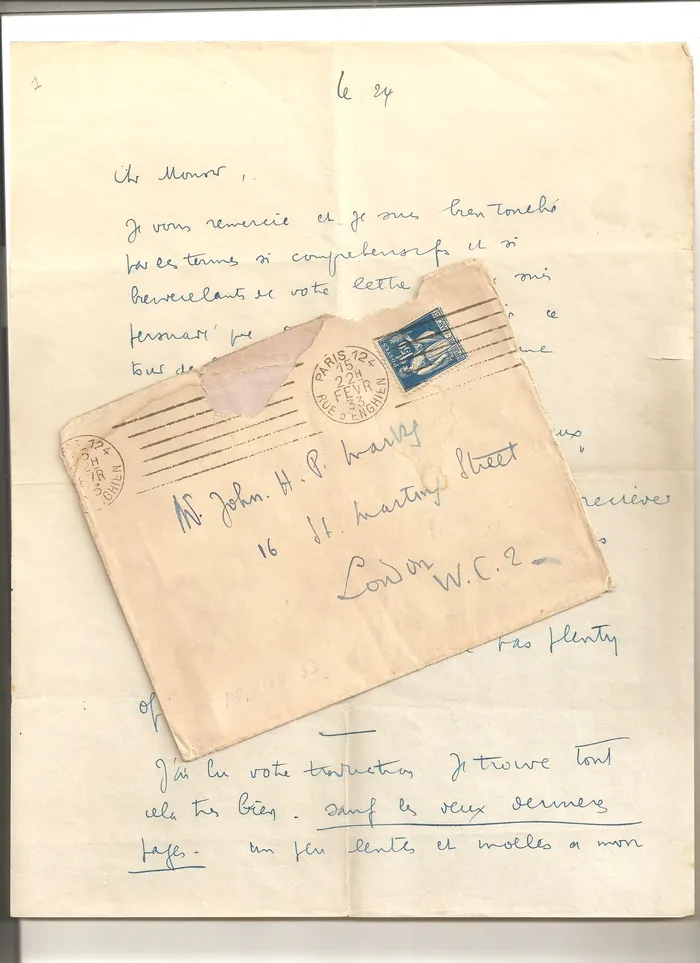 1
le 24
Cher Monsieur,
Je vous remercie et je suis bien touché
par les termes si compréhensifs et si
bienveillants de votre lettre suis
persuadé que ce
tour de me
PARIS 124
15
22H
FEVR
33
RUE D'ENGHIEN
POSTES
124
GHIEN
Mr. John. H. P. Marks
16 St. Martins Street
London W.C.2 -
pas plenty
of
J'ai lu votre traduction Je trouve tout
cela très bien. sauf les deux dernières
pages. un peu lentes et molles à mon